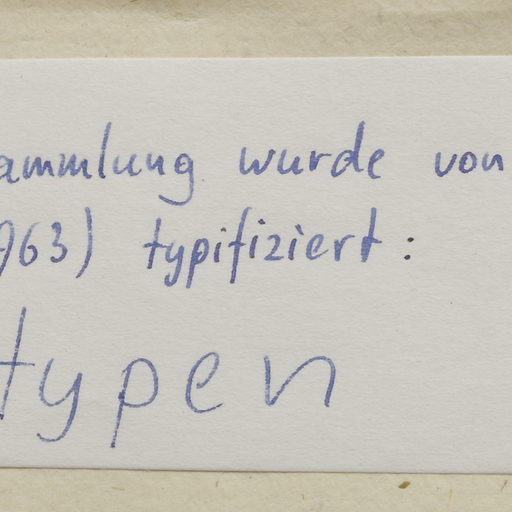 ammlung wurde von
963) typifiziert:
typen